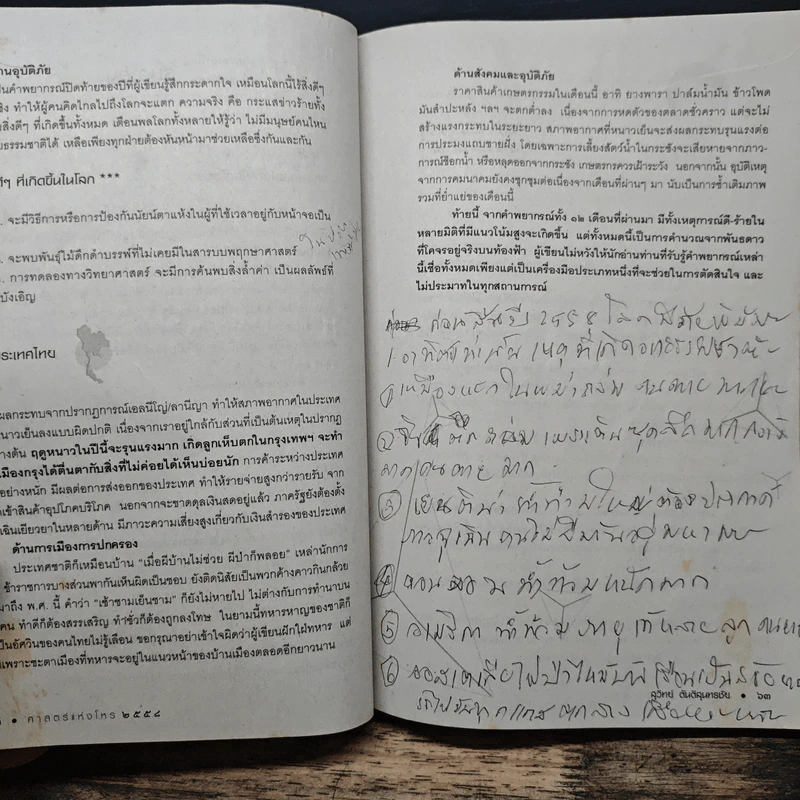 านอุบัติภัย
ป็นคำพยากรณ์ปิดท้ายของปีที่ผู้เขียนรู้สึกกระดากใจ เหมือนโลกนี้ไร้สิ่งดีๆ
ริง ทำให้ผู้คนคิดไกลไปถึงโลกจะแตก ความจริง คือ กระแสข่าวร้ายทั้ง
งสิ่งดีๆ ที่เกิดขึ้นทั้งหมด เตือนพลโลกทั้งหลายให้รู้ว่า ไม่มีมนุษย์คนไหน
ธรรมชาติได้ เหลือเพียงทุกฝ่ายต้องหันหน้ามาช่วยเหลือซึ่งกันและกัน
ดีๆ ที่เกิดขึ้นในโลก ***
. จะมีวิธีการหรือการป้องกันนัยน์ตาแห้งในผู้ที่ใช้เวลาอยู่กับหน้าจอเป็น
. จะพบพันธุ์ไม้ดึกดำบรรพ์ที่ไม่เคยมีในสารบบพฤกษาศาสตร์
. การทดลองทางวิทยาศาสตร์ จะมีการค้นพบสิ่งล้ำค่า เป็นผลลัพธ์ที่
บังเอิญ
ประเทศไทย
ผลกระทบจากปรากฏการณ์เอลนีโญ่/ลานีญา ทำให้สภาพอากาศในประเทศ
หนาวเย็นลงแบบผิดปกติ เนื่องจากเราอยู่ใกล้กับส่วนที่เป็นต้นเหตุในปรากฏ
างต้น ฤดูหนาวในปีนี้จะรุนแรงมาก เกิดลูกเห็บตกในกรุงเทพฯ จะทำ
เมืองกรุงได้ตื่นตากับสิ่งที่ไม่ค่อยได้เห็นบ่อยนัก การค้าระหว่างประเทศ
อย่างหนัก มีผลต่อการส่งออกของประเทศ ทำให้รายจ่ายสูงกว่ารายรับ จาก
เข้าสินค้าอุปโภคบริโภค นอกจากจะขาดดุลเงินสดอยู่แล้ว ภาครัฐยังต้องตั้ง
เฉินเยียวยาในหลายด้าน มีภาวะความเสี่ยงสูงเกี่ยวกับเงินสำรองของประเทศ
ด้านการเมืองการปกครอง
ประเทศชาติก็เหมือนบ้าน "เมื่อผีบ้านไม่ช่วย ผีป่าก็พลอย" เหล่านักการ
ข้าราชการบางส่วนพากันเห็นผิดเป็นชอบ ยังติดนิสัยเป็นพวกค้างคาวกินกล้วย
มาถึง พ.ศ. นี้ คำว่า "เช้าชามเย็นชาม" ก็ยังไม่หายไป ไม่ต่างกับการทำนาบน
คน ทำดีก็ต้องสรรเสริญ ทำชั่วก็ต้องถูกลงโทษ ในยามนี้ทหารหาญของชาติก็
เป็นอัศวินของคนไทยไม่รู้เลือน ขอกรุณาอย่าเข้าใจผิดว่าผู้เขียนฝักใฝ่ทหาร แต่
เพราะชะตาเมืองที่ทหารจะอยู่ในแนวหน้าของบ้านเมืองตลอดอีกยาวนาน
• ศาสตร์แห่งโหร ๒๕๕๘
ด้านสังคมและอุบัติภัย
ราคาสินค้าเกษตรกรรมในเดือนนี้ อาทิ ยางพารา ปาล์มน้ำมัน ข้าวโพด
มันสำปะหลัง ฯลฯ จะตกต่ำลง เนื่องจากการหดตัวของตลาดชั่วคราว แต่จะไม่
สร้างแรงกระทบในระยะยาว สภาพอากาศที่หนาวเย็นจะส่งผลกระทบรุนแรงต่อ
การประมงแถบชายฝั่ง โดยเฉพาะการเลี้ยงสัตว์น้ำในกระชังจะเสียหายจากภาวะ-
การณ์ช็อกน้ำ หรือหลุดออกจากกระชัง เกษตรกรควรเฝ้าระวัง นอกจากนั้น อุบัติเหตุ
จากการคมนาคมยังคงชุกชุมต่อเนื่องจากเดือนที่ผ่านๆ มา นับเป็นการซ้ำเติมภาพ
รวมที่ย่ำแย่ของเดือนนี้
ท้ายนี้ จากคำพยากรณ์ทั้ง ๑๒ เดือนที่ผ่านมา มีทั้งเหตุการณ์ดี-ร้ายใน
หลายมิติที่มีแนวโน้มสูงจะเกิดขึ้น แต่ทั้งหมดนี้เป็นการคำนวณจากพันธดาว
ที่โคจรอยู่จริงบนท้องฟ้า ผู้เขียนไม่หวังให้นักอ่านท่านที่รับรู้คำพยากรณ์เหล่า
นี้เชื่อทั้งหมดเพียงแต่เป็นเครื่องมือประเภทหนึ่งที่จะช่วยในการตัดสินใจ และ
ไม่ประมาทในทุกสถานการณ์
ก่อนสิ้นปี 2558 โลก
1. อาทิตย์ เหตุที่เกิด
① เหมือง ในพม่าถล่ม คนตาย
② จีน ดินถล่ม
มากคนตาย มาก
③ น้ำท่วมใหญ่ต้องประกาศ
④ ลอนดอน น้ำท่วมหนักมาก
⑤ อเมริกา น้ำท่วม พายุ หลายลูก
⑥ ออสเตรเลียไฟป่าไหม้
สุวิทย์ ตันติสุนทรชัย • ๖๓